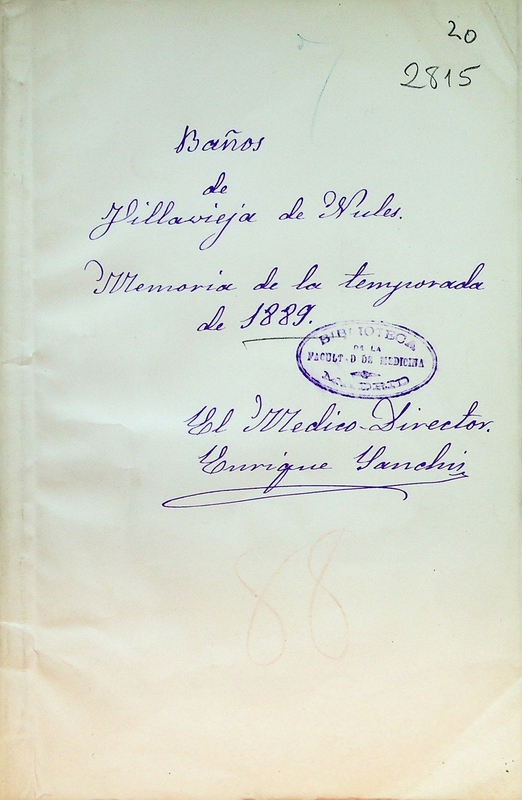 20
2815
Baños
de
Villavieja de Nules.
Memoria de la temporada
de 1889.
BIBLIOTECA
DE LA
FACULT·D DE MEDICINA
MADRID
El Medico-Director.
Enrique Sanchis
88